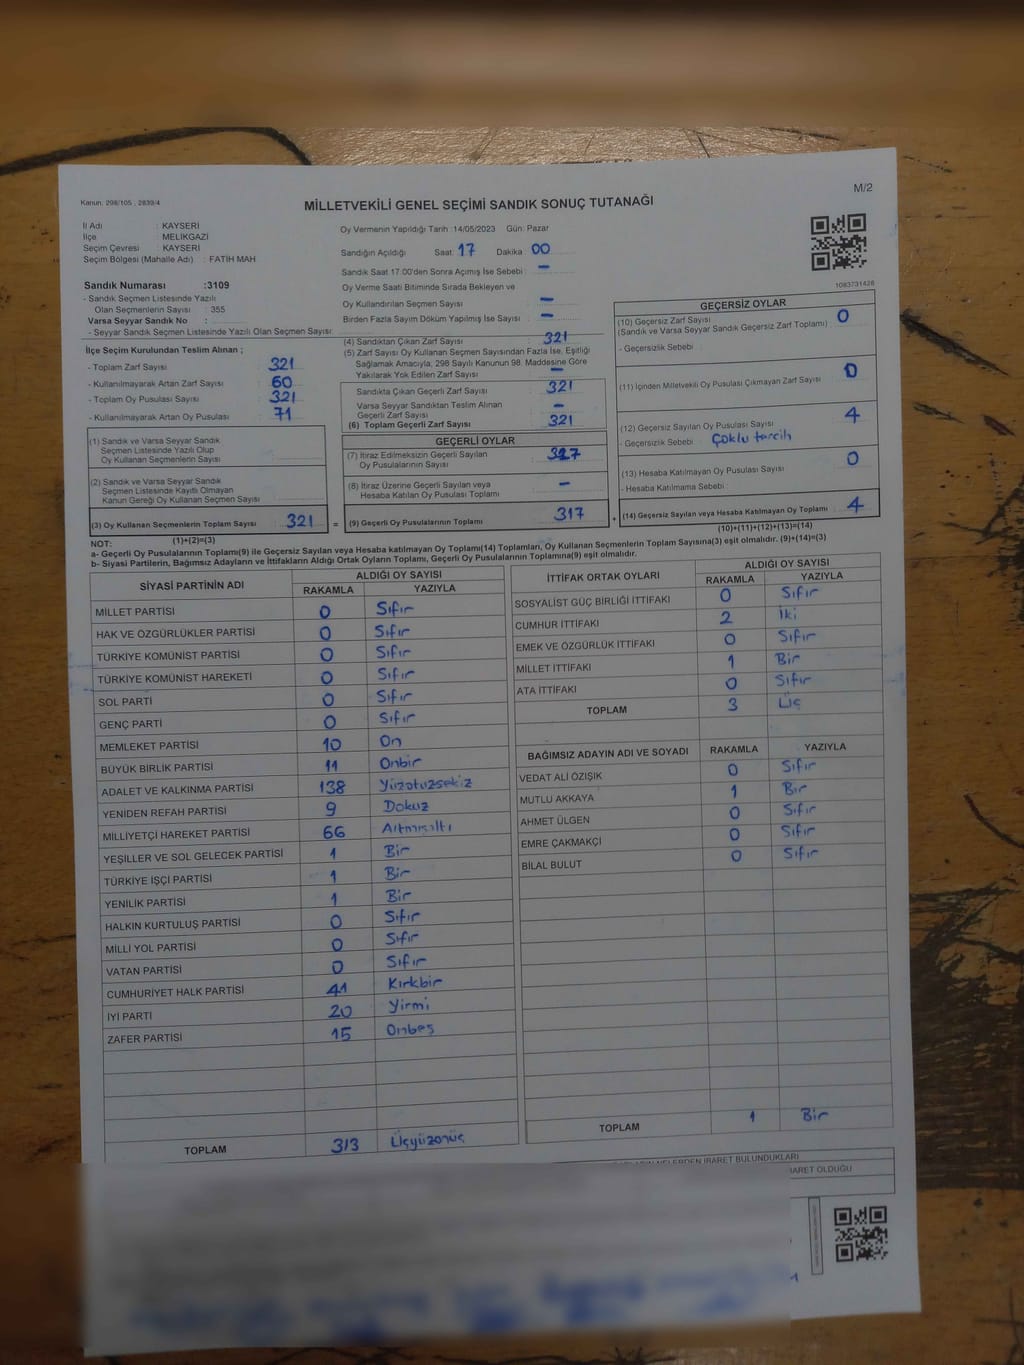 M/2
Kanun. 298/105 , 2839/4
MİLLETVEKİLİ GENEL SEÇİMİ SANDIK SONUÇ TUTANAĞI
İl Adı : KAYSERİ
İlçe : MELİKGAZİ
Seçim Çevresi : KAYSERİ
Seçim Bölgesi (Mahalle Adı) : FATİH MAH
Sandık Numarası :3109
- Sandık Seçmen Listesinde Yazılı
Olan Seçmenlerin Sayısı : 355
Varsa Seyyar Sandık No :
- Seyyar Sandık Seçmen Listesinde Yazılı Olan Seçmen Sayısı:
Oy Vermenin Yapıldığı Tarih :14/05/2023 Gün: Pazar
Sandığın Açıldığı Saat: 17 Dakika: 00
Sandık Saat 17:00'den Sonra Açımış İse Sebebi : –
Oy Verme Saati Bitiminde Sırada Bekleyen ve
Oy Kullandırılan Seçmen Sayısı –
Birden Fazla Sayım Döküm Yapılmış İse Sayısı : –
1083731428
İlçe Seçim Kurulundan Teslim Alınan ;
- Toplam Zarf Sayısı : 321
- Kullanılmayarak Artan Zarf Sayısı : 60
- Toplam Oy Pusulası Sayısı : 321
- Kullanılmayarak Artan Oy Pusulası : 71
(1) Sandık ve Varsa Seyyar Sandık
Seçmen Listesinde Yazılı Olup
Oy Kullanan Seçmenlerin Sayısı :
(2) Sandık ve Varsa Seyyar Sandık
Seçmen Listesinde Kayıtlı Olmayan
Kanun Gereği Oy Kullanan Seçmen Sayısı :
(3) Oy Kullanan Seçmenlerin Toplam Sayısı : 321 =
(1)+(2)=(3)
(4) Sandıktan Çıkan Zarf Sayısı : 321
(5) Zarf Sayısı Oy Kullanan Seçmen Sayısından Fazla İse, Eşitliği
Sağlamak Amacıyla; 298 Sayılı Kanunun 98. Maddesine Göre
Yakılarak Yok Edilen Zarf Sayısı : –
Sandıkta Çıkan Geçerli Zarf Sayısı : 321
Varsa Seyyar Sandıktan Teslim Alınan
Geçerli Zarf Sayısı : –
(6) Toplam Geçerli Zarf Sayısı : 321
GEÇERLİ OYLAR
(7) İtiraz Edilmeksizin Geçerli Sayılan
Oy Pusulalarının Sayısı : 317
(8) İtiraz Üzerine Geçerli Sayılan veya
Hesaba Katılan Oy Pusulası Toplamı –
(9) Geçerli Oy Pusulalarının Toplamı 317 +
GEÇERSİZ OYLAR
(10) Geçersiz Zarf Sayısı : 0
(Sandık ve Varsa Seyyar Sandık Geçersiz Zarf Toplamı)
- Geçersizlik Sebebi :
(11) İçinden Milletvekili Oy Pusulası Çıkmayan Zarf Sayısı : 0
(12) Geçersiz Sayılan Oy Pusulası Sayısı : 4
- Geçersizlik Sebebi : Çoklu tercih
(13) Hesaba Katılmayan Oy Pusulası Sayısı : 0
- Hesaba Katılmama Sebebi :
(14) Geçersiz Sayılan veya Hesaba Katılmayan Oy Toplamı : 4
(10)+(11)+(12)+(13)=(14)
NOT:
a- Geçerli Oy Pusulalarının Toplamı(9) ile Geçersiz Sayılan veya Hesaba katılmayan Oy Toplamı(14) Toplamları, Oy Kullanan Seçmenlerin Toplam Sayısına(3) eşit olmalıdır. (9)+(14)=(3)
b- Siyasi Partilerin, Bağımsız Adayların ve İttifakların Aldığı Ortak Oyların Toplamı, Geçerli Oy Pusulalarının Toplamına(9) eşit olmalıdır.
SİYASİ PARTİNİN ADI ALDIĞI OY SAYISI
RAKAMLA YAZIYLA
MİLLET PARTİSİ 0 Sıfır
HAK VE ÖZGÜRLÜKLER PARTİSİ 0 Sıfır
TÜRKİYE KOMÜNİST PARTİSİ 0 Sıfır
TÜRKİYE KOMÜNİST HAREKETİ 0 Sıfır
SOL PARTİ 0 Sıfır
GENÇ PARTİ 0 Sıfır
MEMLEKET PARTİSİ 10 On
BÜYÜK BİRLİK PARTİSİ 11 Onbir
ADALET VE KALKINMA PARTİSİ 138 Yüzotuzsekiz
YENİDEN REFAH PARTİSİ 9 Dokuz
MİLLİYETÇİ HAREKET PARTİSİ 66 Altmışaltı
YEŞİLLER VE SOL GELECEK PARTİSİ 1 Bir
TÜRKİYE İŞÇİ PARTİSİ 1 Bir
YENİLİK PARTİSİ 1 Bir
HALKIN KURTULUŞ PARTİSİ 0 Sıfır
MİLLİ YOL PARTİSİ 0 Sıfır
VATAN PARTİSİ 0 Sıfır
CUMHURİYET HALK PARTİSİ 41 Kırkbir
İYİ PARTİ 20 Yirmi
ZAFER PARTİSİ 15 Onbeş
TOPLAM 313 Üçyüzonüç
İTTİFAK ORTAK OYLARI ALDIĞI OY SAYISI
RAKAMLA YAZIYLA
SOSYALİST GÜÇ BİRLİĞİ İTTİFAKI 0 Sıfır
CUMHUR İTTİFAKI 2 İki
EMEK VE ÖZGÜRLÜK İTTİFAKI 0 Sıfır
MİLLET İTTİFAKI 1 Bir
ATA İTTİFAKI 0 Sıfır
TOPLAM 3 Üç
BAĞIMSIZ ADAYIN ADI VE SOYADI RAKAMLA YAZIYLA
VEDAT ALİ ÖZIŞIK 0 Sıfır
MUTLU AKKAYA 1 Bir
AHMET ÜLGEN 0 Sıfır
EMRE ÇAKMAKÇİ 0 Sıfır
BİLAL BULUT 0 Sıfır
TOPLAM 1 Bir
NELERDEN İBARET BULUNDUKLARI
OLDUĞU